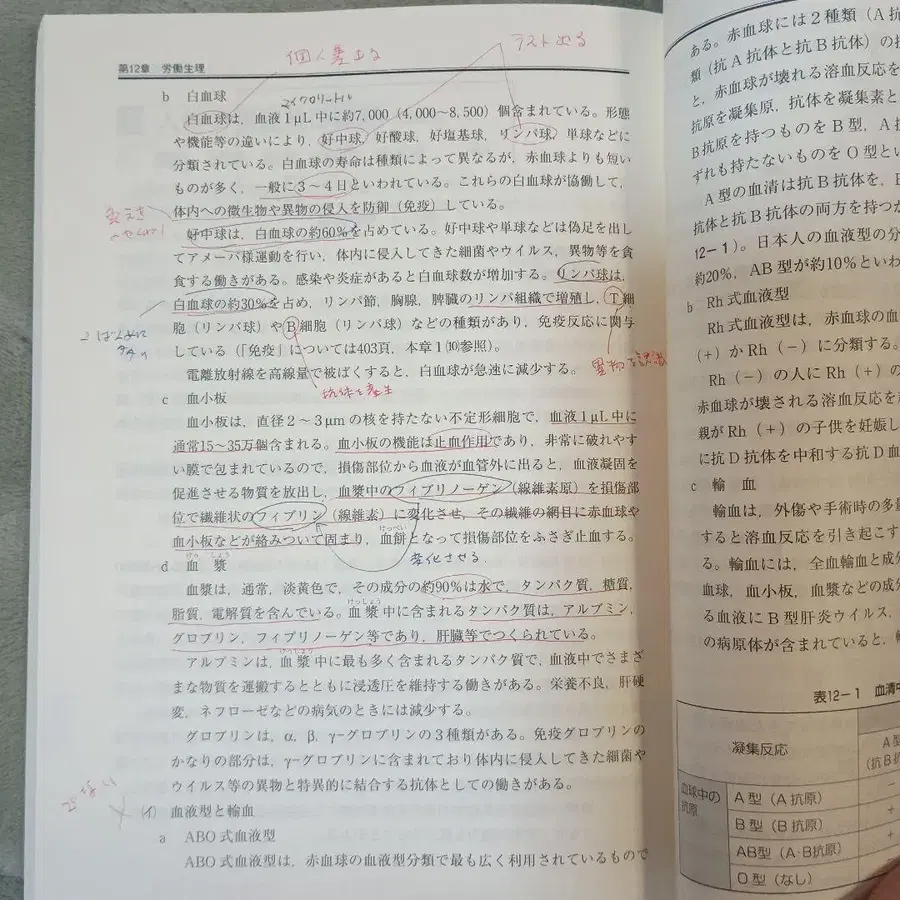 個人差ある
テスト出る
第12章 労働生理
b 白血球
マイクロリットル
白血球は，血液1μL中に約7,000（4,000～8,500）個含まれている。形態
や機能等の違いにより，好中球，好酸球，好塩基球，リンパ球，単球などに
分類されている。白血球の寿命は種類によって異なるが，赤血球よりも短い
ものが多く，一般に3～4日といわれている。これらの白血球が協働して，
体内への微生物や異物の侵入を防御（免疫）している。
好中球は，白血球の約60％を占めている。好中球や単球などは偽足を出し
てアメーバ様運動を行い，体内に侵入してきた細菌やウイルス，異物等を貪
食する働きがある。感染や炎症があると白血球数が増加する。リンパ球は，
白血球の約30％を占め，リンパ節，胸腺，脾臓のリンパ組織で増殖し，T細
胞（リンパ球）やB細胞（リンパ球）などの種類があり，免疫反応に関与
している（「免疫」については403頁，本章1⑽参照）。
異物を認識
電離放射線を高線量で被ばくすると，白血球が急速に減少する。
抗体を産生
c 血小板
血小板は，直径2～3μmの核を持たない不定形細胞で，血液1μL中に
通常15～35万個含まれる。血小板の機能は止血作用であり，非常に破れやす
い膜で包まれているので，損傷部位から血液が血管外に出ると，血液凝固を
促進させる物質を放出し，血漿中のフィブリノーゲン（線維素原）を損傷部
位で繊維状のフィブリン（線維素）に変化させ，その線維の網目に赤血球や
血小板などが絡みついて固まり，血餅となって損傷部位をふさぎ止血する。
けっぺい
変化させる
d 血漿
けっしょう
血漿は，通常，淡黄色で，その成分の約90％は水で，タンパク質，糖質，
脂質，電解質を含んでいる。血漿中に含まれるタンパク質は，アルブミン，
けっしょう
グロブリン，フィブリノーゲン等であり，肝臓等でつくられている。
アルブミンは，血漿中に最も多く含まれるタンパク質で，血液中でさまざ
けっしょう
まな物質を運搬するとともに浸透圧を維持する働きがある。栄養不良，肝硬
変，ネフローゼなどの病気のときには減少する。
グロブリンは，α，β，γ-グロブリンの3種類がある。免疫グロブリンの
かなりの部分は，γ-グロブリンに含まれており体内に侵入してきた細菌や
ウイルス等の異物と特異的に結合する抗体としての働きがある。
でない
(イ) 血液型と輸血
a ABO式血液型
ABO式血液型は，赤血球の血液型分類で最も広く利用されているもので
ある。赤血球には2種類（A抗
類（抗A抗体と抗B抗体）の
と，赤血球が壊れる溶血反応を
抗原を凝集原，抗体を凝集素と
B抗原を持つものをB型，A
ずれも持たないものをO型とい
A型の血清は抗B抗体を，
抗体と抗B抗体の両方を持つ
12-1）。日本人の血液型の分
約20％，AB型が約10％といわ
b Rh式血液型
Rh式血液型は，赤血球の血
（＋）かRh（－）に分類する。
Rh（－）の人にRh（＋）の
赤血球が壊される溶血反応を
親がRh（＋）の子供を妊娠し
に抗D抗体を中和する抗D血
c 輸血
輸血は，外傷や手術時の多量
すると溶血反応を引き起こす
る。輸血には，全血輸血と成分
血球，血小板，血漿などの成
る血液にB型肝炎ウイルス，
の病原体が含まれていると，
表12-1 血清中
凝集反応
A型
（抗B抗
血球中の
抗原
A型（A抗原） －
B型（B抗原） ＋
AB型（A・B抗原） ＋
O型（なし）